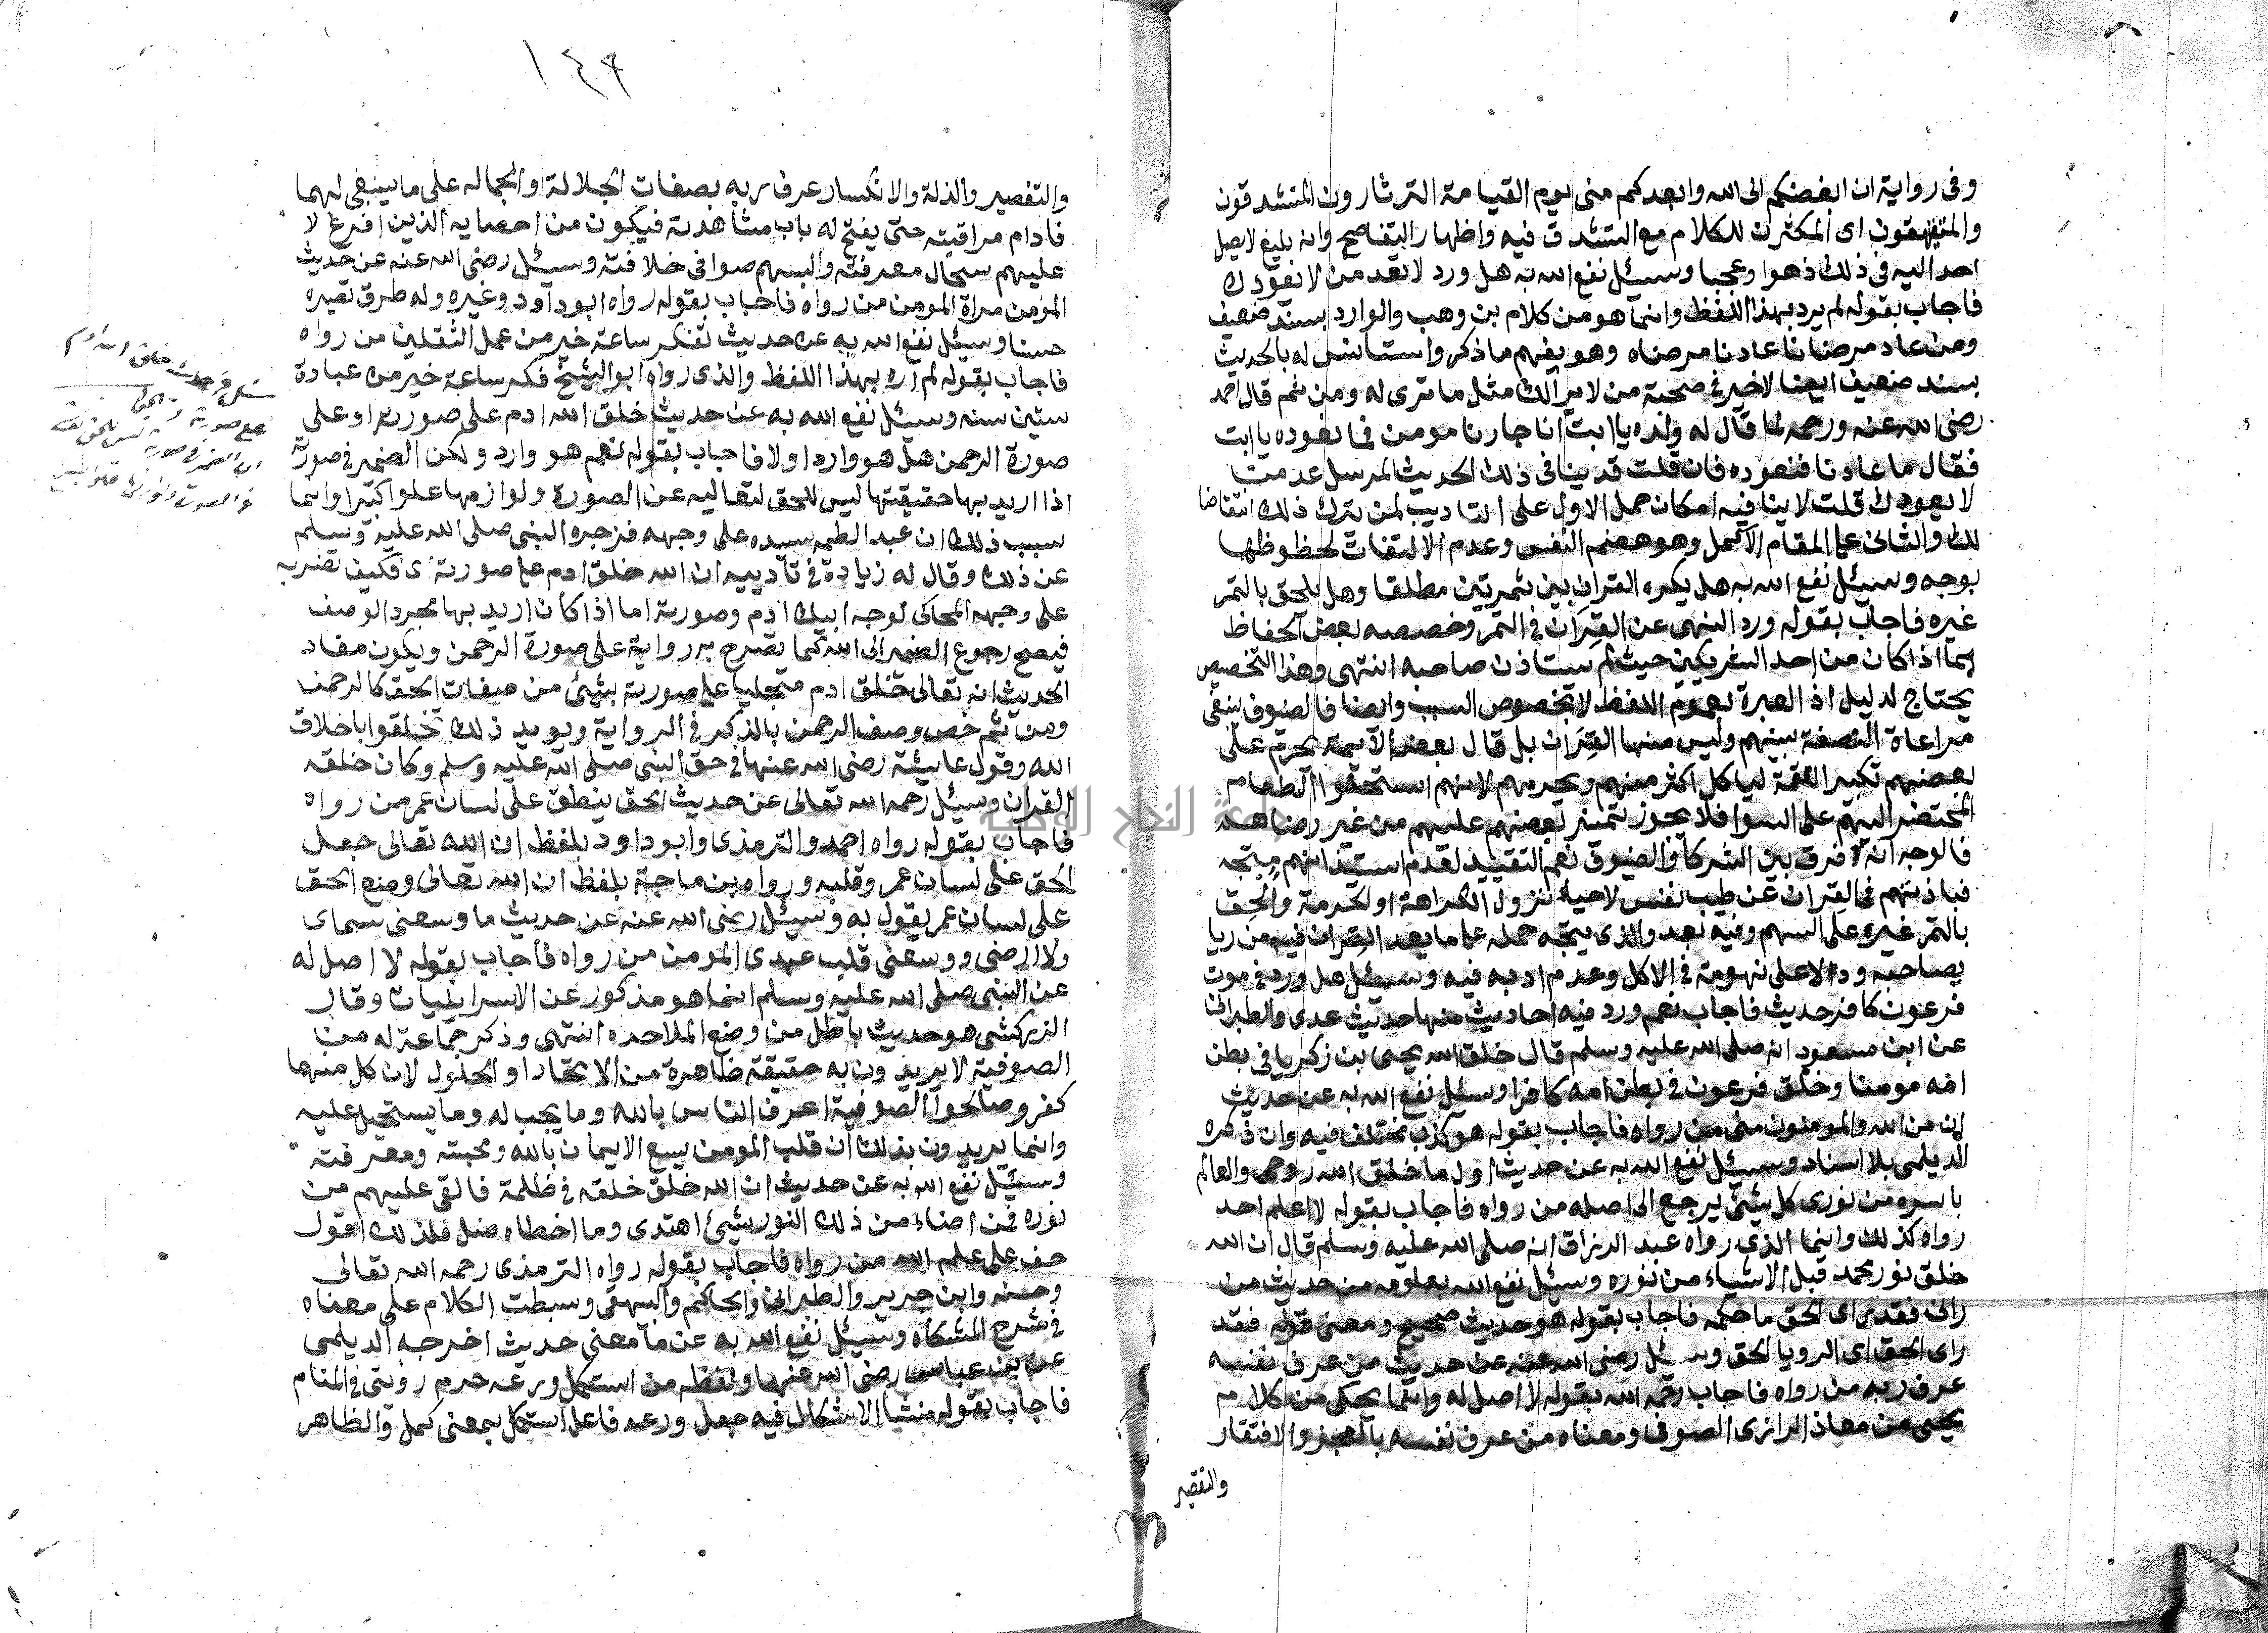 وفى رواية ان ابغضكم الى الله وابعدكم منى يوم القيامة الثرثارون المتشدقون
والمتفيهقون اى المكثرن للكلام مع التشدق فيه واظهار التفاصح وانه بليغ لا يصل
احد اليه فى ذلك زهوا وعجبا وسيئل نفع الله به هل ورد لا تعد من لا يعودك
فاجاب بقوله لم يرد بهذا اللفظ وانما هو من كلام بن وهب والوارد بسند ضعيف
ومن عاد مرضانا عادنا مرضاه وهو يفهم ماذكر واستانس له بالحديث
بسند ضعيف ايضا لا خير فى صحبة من لا يرا لك مثل ما ترى له ومن ثم قال احمد
رضى الله عنه ورحمه لما قال له ولده يا ابت ان جارنا مومن فما نعوده يا ابت
فقال ما عادنا فنعوده فان قلت قد ينافى ذلك الحديث المرسل عد من
لا يعودك قلت لا ينافيه امكان حمل الاول على التاديب لمن ترك ذلك انتقاضا
لك والثانى على المقام الاكمل وهو هضم النفس وعدم الالتفات لحظوظها
بوجه وسيئل نفع الله به هل يكره القران بين ثمرتين مطلقا وهل يلحق بالتمر
غيره فاجاب بقوله ورد النهى عن القران فى التمر وخصصه بعض الحفاظ
بما اذا كان من احد الشريكين حيث لم يستاذن صاحبه انتهى وهذا التخصيص
يحتاج لدليل اذ العبرة لعموم اللفظ لا بخصوص السبب وايضا فالضيوف ينبغى
مراعاة النصفة بينهم وليس منها القران بل قال بعض الايمة يحرم على
بعضهم تكبير اللقمة لياكل اكثر منهم ويحرمهم لانهم استحقوا الطعام
المحتضر اليهم على السوا فلا يجوز تمييز بعضهم عليهم من غير رضاهم
فالوجه انه لا فرق بين الشركا والضيوف نعم التقييد لعدم استيذانهم متجه
فباذنهم فى القران عن طيب نفس لا حياء تزول الكراهة او الحرمة والحق
بالتمر غيره على السهم وفيه بعد والذى يتجه حمله على ما يعد القران فيه من ريا
بصاحبه ودالا على نهومة فى الاكل وعدم ادبه فيه وسيئل هل ورد فى موت
فرعون كافر حديث فاجاب نعم ورد فيه احاديث منها حديث عدى والطبرانى
عن ابن مسعود انه صلى الله عليه وسلم قال خلق الله يحيى بن زكريا فى بطن
امه مومنا وخلق فرعون فى بطن امه كافرا وسئل نفع الله به عن حديث
ان من الله والمومنون منى من رواه فاجاب بقوله هو كذب مختلف فيه وان ذكره
الديلمى بلا اسناد وسيئل نفع الله به عن حديث اول ما خلق الله روحى والعالم
باسره من نورى كل شئ يرجع الى اصله من رواه فاجاب بقوله لا اعلم احد
رواه كذلك وانما الذى رواه عبد الرزاق انه صلى الله عليه وسلم قال ان الله
خلق نور محمد قبل الاشياء من نوره وسيئل نفع الله بعلومه من حديث من
رانى فقد راى الحق ما حكمه فاجاب بقوله هو حديث صحيح ومعنى قوله فقد
راى الحق اى الرويا الحق وسئل رضى الله عنه عن حديث من عرف نفسه
عرف ربه من رواه فاجاب رحمه الله بقوله لا اصل له وانما يحكى من كلام
يحيى من معاذ الرازى الصوفى ومعناه من عرف نفسه بالعجز والافتقار
والتقصير
١٤٩
والتقصير والذلة والانكسار عرف ربه بصفات الجلالة والجماله على ما ينبغى لهما
فادام مراقبته حتى يفتح له باب مشاهدته فيكون من احصايه الذين افرغ لا
عليهم سجال معرفته والبسهم صوافى خلافته وسيئل رضى الله عنه عن حديث
المؤمن مراة المومن من رواه فاجاب بقوله رواه ابوداود وغيره وله طرق تصيره
حسنا وسيئل نفع الله به عن حديث تفكر ساعة خير من عمل الثقلين من رواه
فاجاب بقوله لم اره بهذا اللفظ والذى رواه ابو الشيخ فكر ساعة خير من عبادة
ستين سنه وسيئل نفع الله به عن حديث خلق الله ادم على صورته او على
صورة الرحمن هل هو وارد اولا فاجاب بقوله نعم هو وارد ولكن الضمير فى صورته
اذا اريد بها حقيقتها ليس للحق لتعاليه عن الصورة ولوازمها علوا كبيرا وانما
سبب ذلك ان عبد الطمه سيده على وجهه فزجره النبى صلى الله عليه وسلم
عن ذلك وقال له زيادة فى تاديبه ان الله خلق ادم على صورته اى فكيف تضربه
على وجهه المحاكى لوجه ابيك ادم وصورته اما اذا كان اريد بها مجرد الوصف
فيصح رجوع الضمير الى الله كما تصرح به رواية على صورة الرحمن ويكون مفاد
الحديث انه تعالى خلق ادم متجليا على صورته بشئ من صفات الحق كالرحمن
ومن ثم خص وصف الرحمن بالذكر فى الرواية ويويد ذلك تخلقوا باخلاق
الله وقول عايشة رضى الله عنها فى حق النبى صلى الله عليه وسلم وكان خلقه
القران وسيئل رحمه الله تعالى عن حديث الحق ينطق على لسان عمر من رواه
فاجاب بقوله رواه احمد والترمذى وابوداود بلفظ ان الله تعالى جعل
الحق على لسان عمر وقلبه ورواه بن ماجة بلفظ ان الله تعالى وضع الحق
على لسان عمر يقول به وسيئل رضى الله عنه عن حديث ما وسعنى سماى
ولا ارضى ووسعنى قلب عبدى المومن من رواه فاجاب بقوله لا اصل له
عن النبى صلى الله عليه وسلم انما هو مذكور عن الاسرايليات وقال
الزركشى هو حديث باطل من وضع الملاحده انتهى وذكر جماعة له من
الصوفية لا يريدون به حقيقة ظاهرة من الاتحاد او الحلول لان كل منهما
كفر وصالحوا الصوفية اعرف الناس بالله وما يجب له وما يستحيل عليه
وانما يريدون بذلك ان قلب المومن يسع الايمان بالله ومحبته ومعرفته
وسيئل نفع الله به عن حديث ان الله خلق خلقه فى ظلمة فالقى عليهم من
نوره فمن اضاء من ذلك النور شئ اهتدى وما اخطاه ضل فلذلك اقول
جف على علم الله من رواه فاجاب بقوله رواه الترمذى رحمه الله تعالى
وحسنه وابن جرير والطبرانى والحاكم والبيهقى وبسطت الكلام على معناه
فى شرح المشكاه وسيئل نفع الله به عن ما معنى حديث اخرجه الديلمى
عن بن عباس رضى الله عنهما ولفظه من استكمل ورعه حرم رؤيتى فى المنام
فاجاب بقوله منشا الاشكال فيه جعل ورعه فاعل استكمل بمعنى كمل والظاهر
خلق الله ادم
جامعة النجاح الوطنية